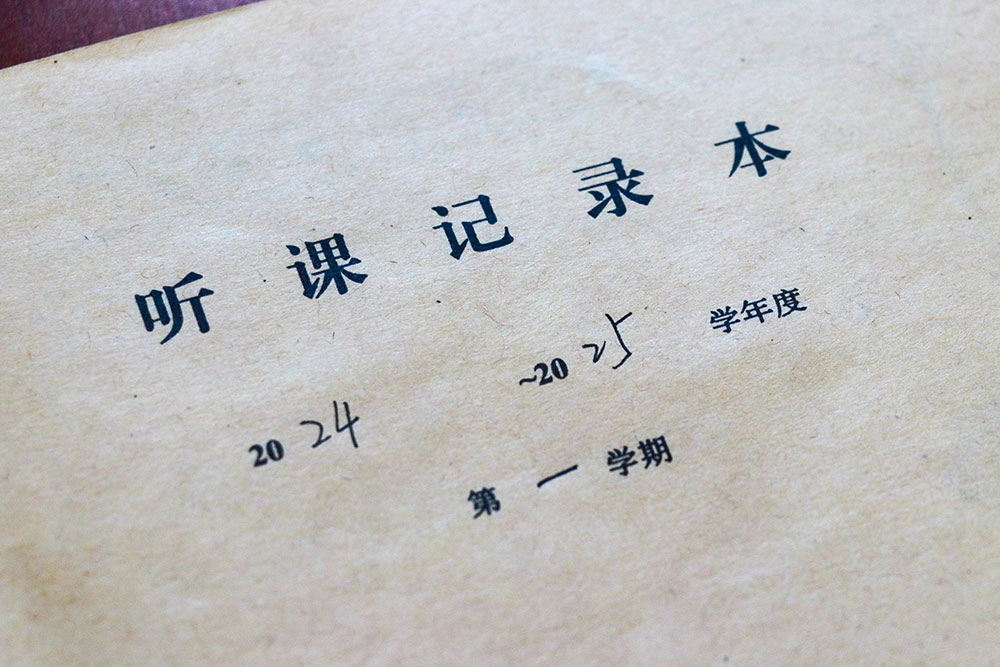 听课记录本
2024 ~2025 学年度
第一学期